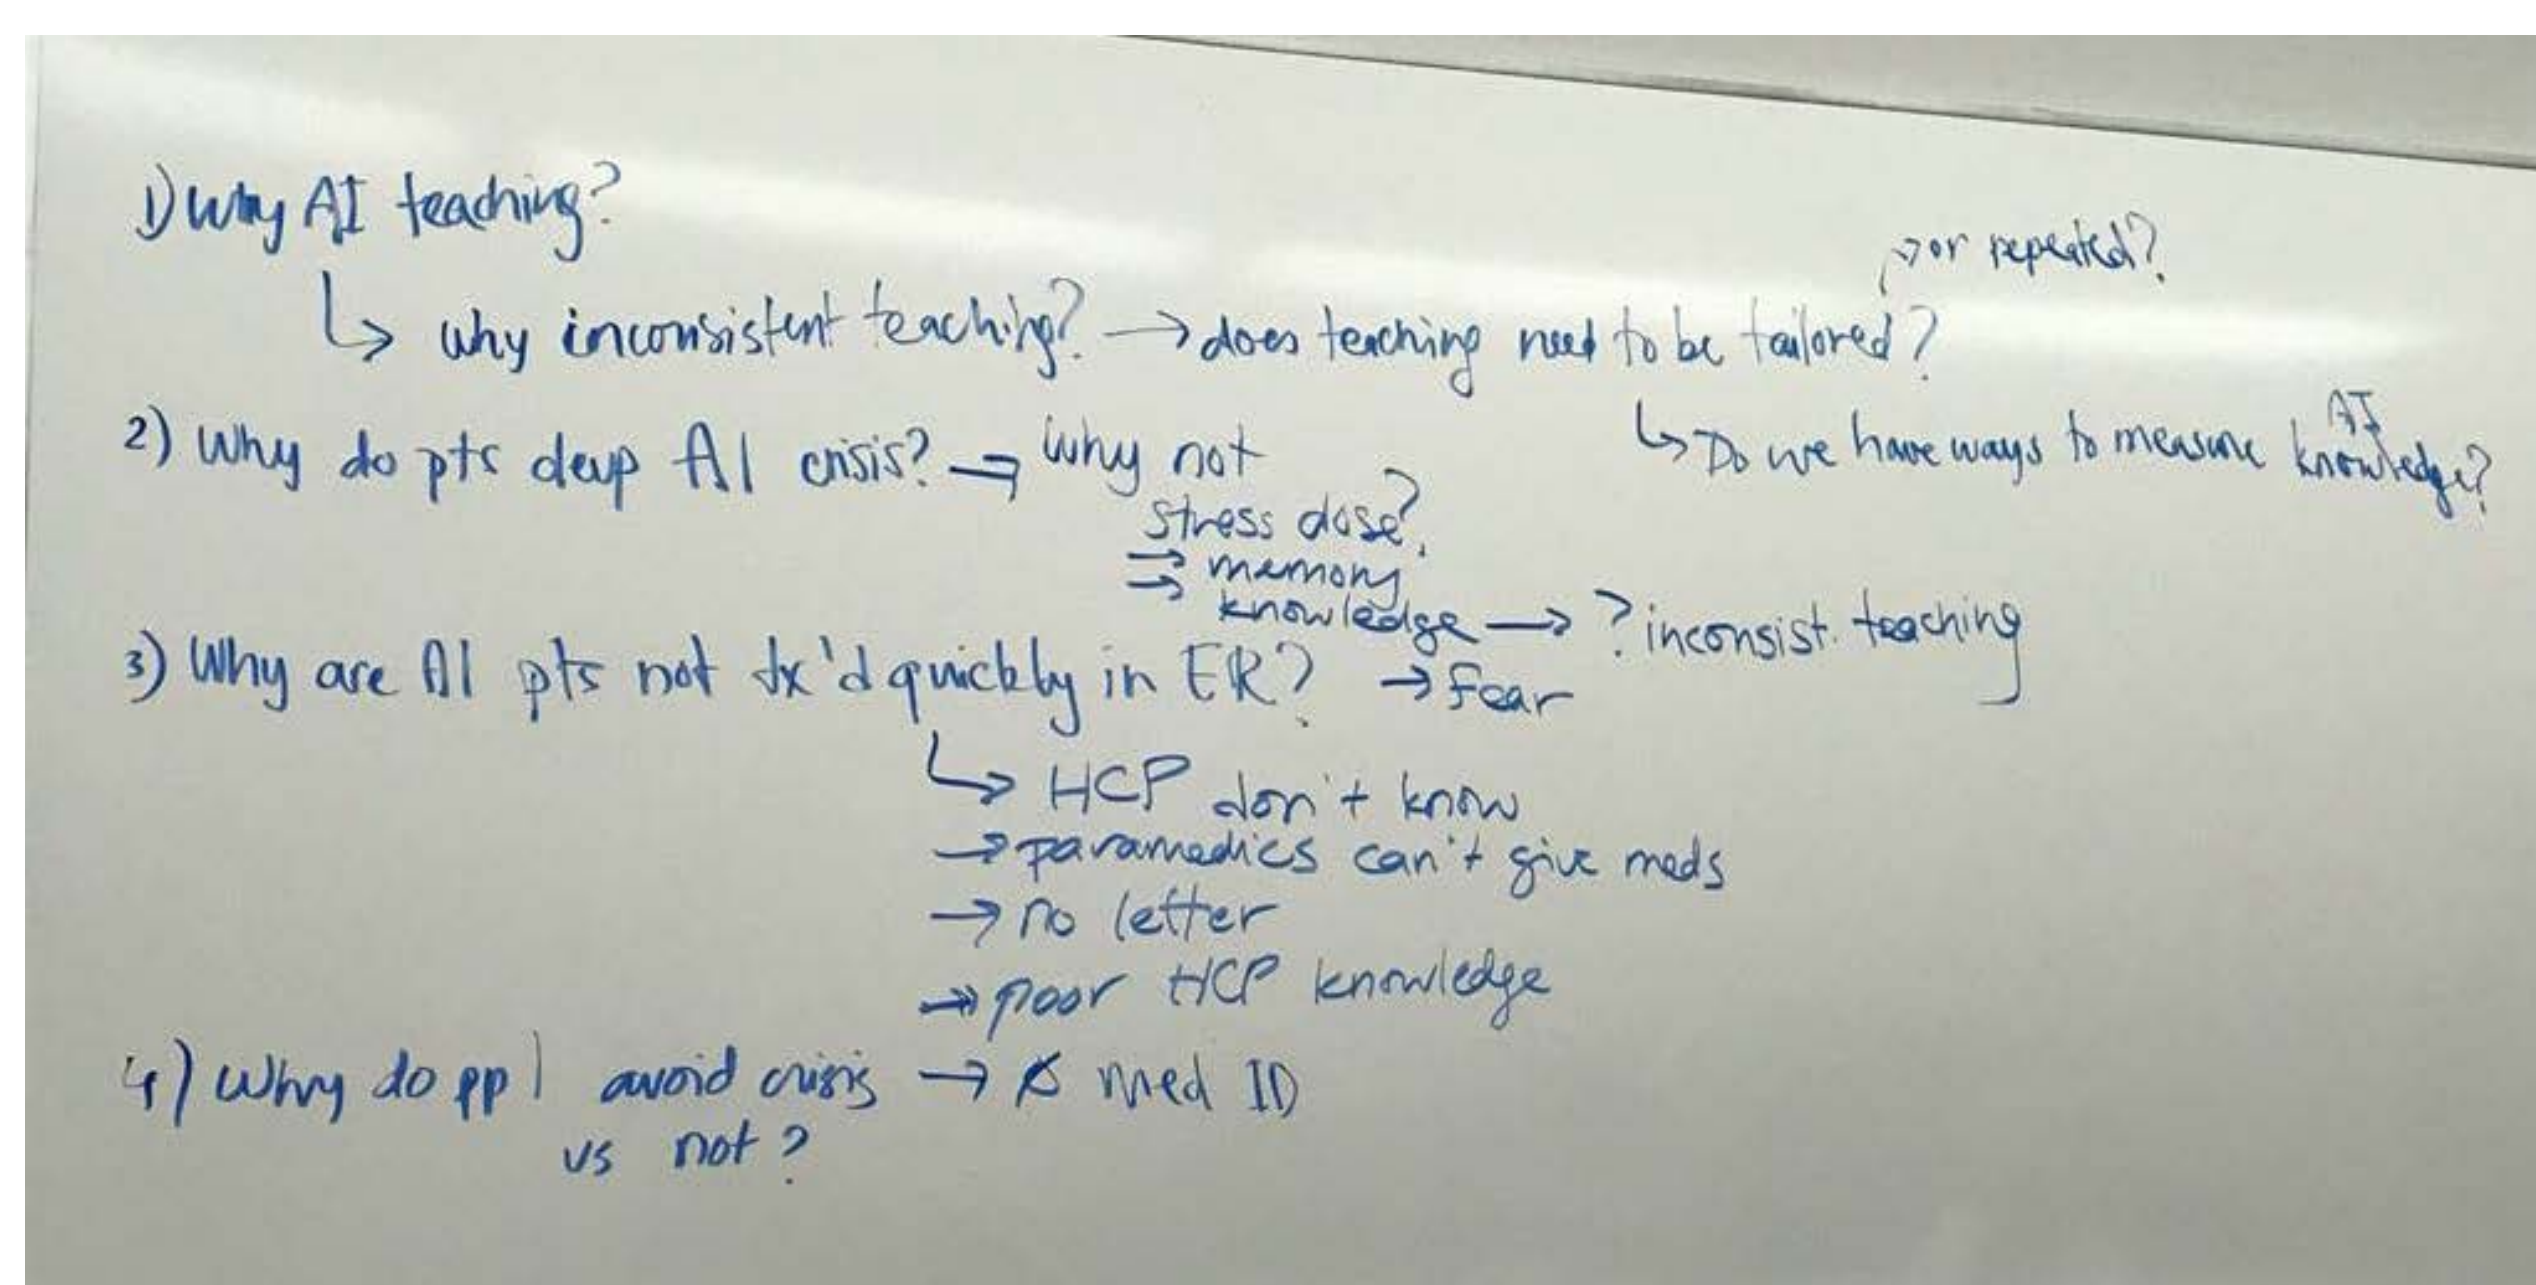 1) Why AI teaching?
→ or repeated?
↳ why inconsistent teaching? → does teaching need to be tailored?
↳ Do we have ways to measure AI knowledge?
2) Why do pts devp AI crisis? → why not
stress dose?
→ memory
→ knowledge → ? inconsist. teaching
3) Why are AI pts not tx'd quickly in ER? → Fear
↳ HCP don't know
→ paramedics can't give meds
→ no letter
→ poor HCP knowledge
4) Why do ppl avoid crisis → Ø med ID
vs not?